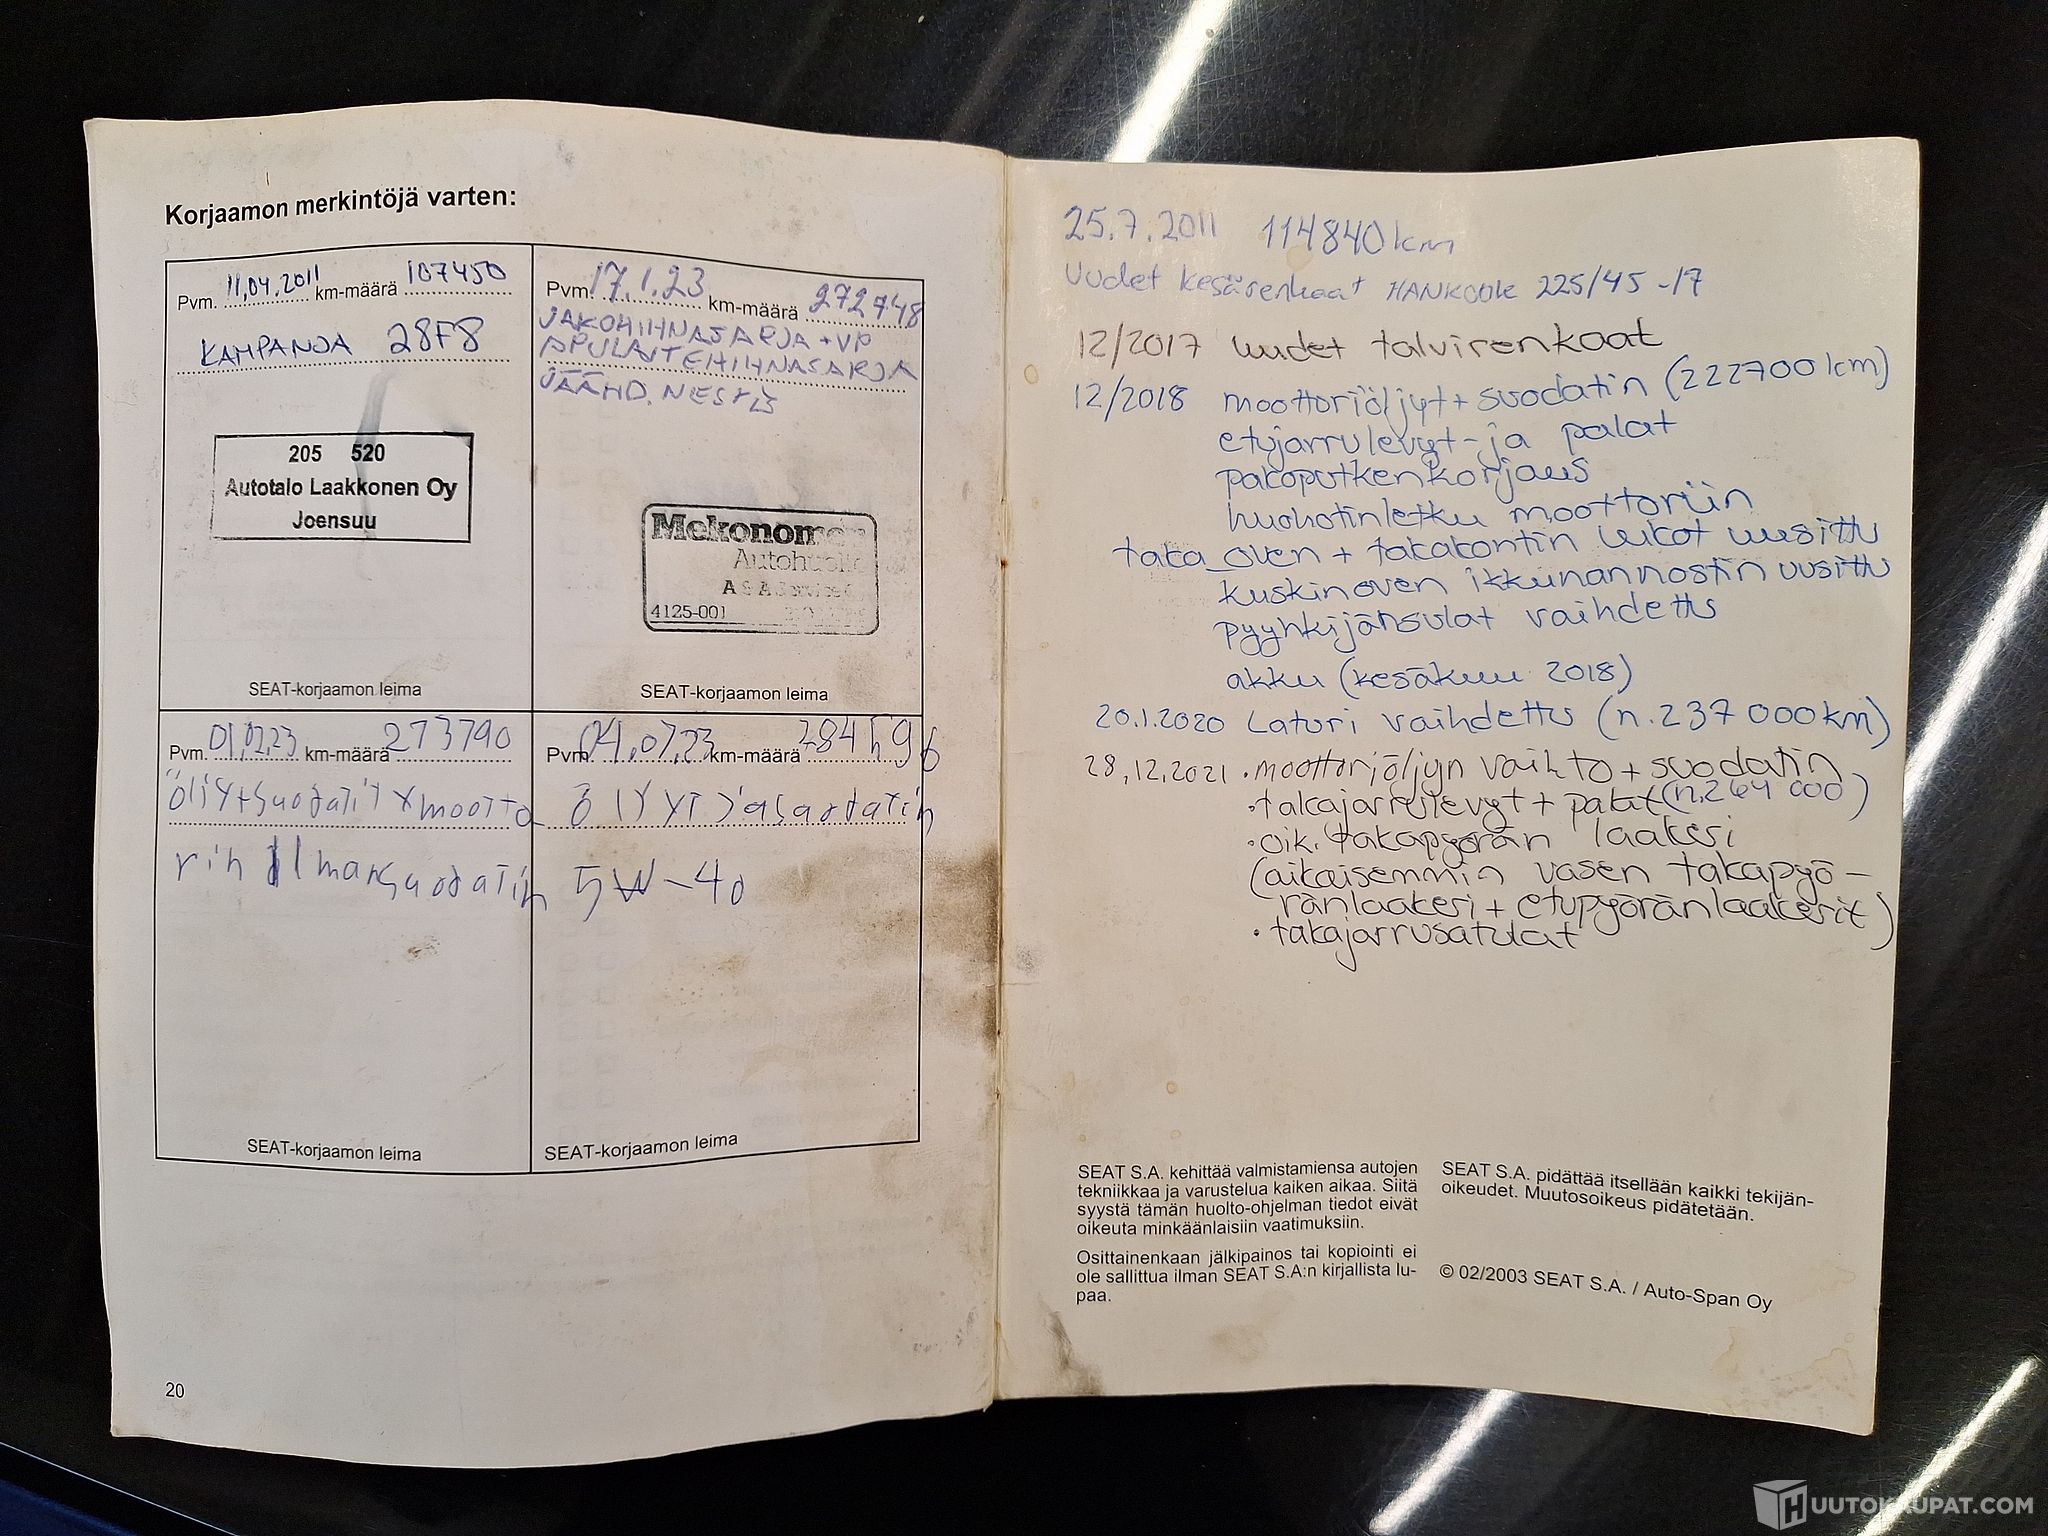 Korjaamon merkintöjä varten:
Pvm. 11.04.2011 km-määrä 107450
KAMPANJA 28F8
205 520
Autotalo Laakkonen Oy
Joensuu
SEAT-korjaamon leima
Pvm. 17.1.23 km-määrä 272748
JAKOHIHNASARJA + VP
APULAITEHIHNASARJA
JÄÄHD. NESTE
Mekonomen
Autohuolto
A&A Service
4125-001
SEAT-korjaamon leima
Pvm. 01.02.23 km-määrä 273790
öljyt+suodatit x mootto
rin ilmansuodatin
SEAT-korjaamon leima
Pvm. 04.07.23 km-määrä 284596
öljyt ja suodatin
5W-40
SEAT-korjaamon leima
20
25.7.2011 114840 km
uudet kesärenkaat HANKOOK 225/45-17
12/2017 uudet talvirenkaat
12/2018 moottoriöljyt + suodatin (222700 km)
etujarrulevyt- ja palat
pakoputkenkorjaus
huohotinletku moottoriin
taka_oven + takakontin lukot uusittu
kuskinoven ikkunannostin uusittu
pyyhkijänsulat vaihdettu
akku (kesäkuu 2018)
20.1.2020 Laturi vaihdettu (n. 237 000 km)
28.12.2021 • moottoriöljyn vaihto + suodatin
• takajarrulevyt + palat (n. 264 000)
• oik. takapyörän laakeri
(aikaisemmin vasen takapyö-
ränlaakeri + etupyöränlaakerit)
• takajarrusatulat
SEAT S.A. kehittää valmistamiensa autojen
tekniikkaa ja varustelua kaiken aikaa. Siitä
syystä tämän huolto-ohjelman tiedot eivät
oikeuta minkäänlaisiin vaatimuksiin.
Osittainenkaan jälkipainos tai kopiointi ei
ole sallittua ilman SEAT S.A:n kirjallista lu-
paa.
SEAT S.A. pidättää itsellään kaikki tekijän-
oikeudet. Muutosoikeus pidätetään.
© 02/2003 SEAT S.A. / Auto-Span Oy
HUUTOKAUPAT.COM